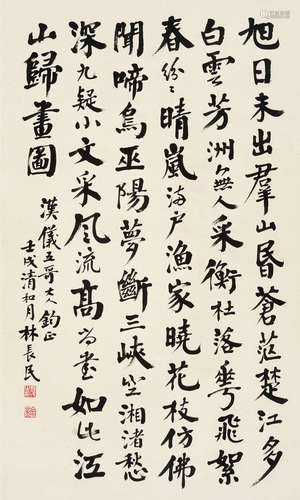 旭日未出羣山昏蒼茫楚江多
白雲芳洲無人采蘅杜落花飛絮
春紛紛晴嵐海戶漁家曉花枝仿佛
聞啼鳥巫陽夢斷三峽空湘渚愁
深九疑小文采風流高尚書如此江
山歸畫圖
漢儀五哥大人鈞正
壬戌清和月林長民